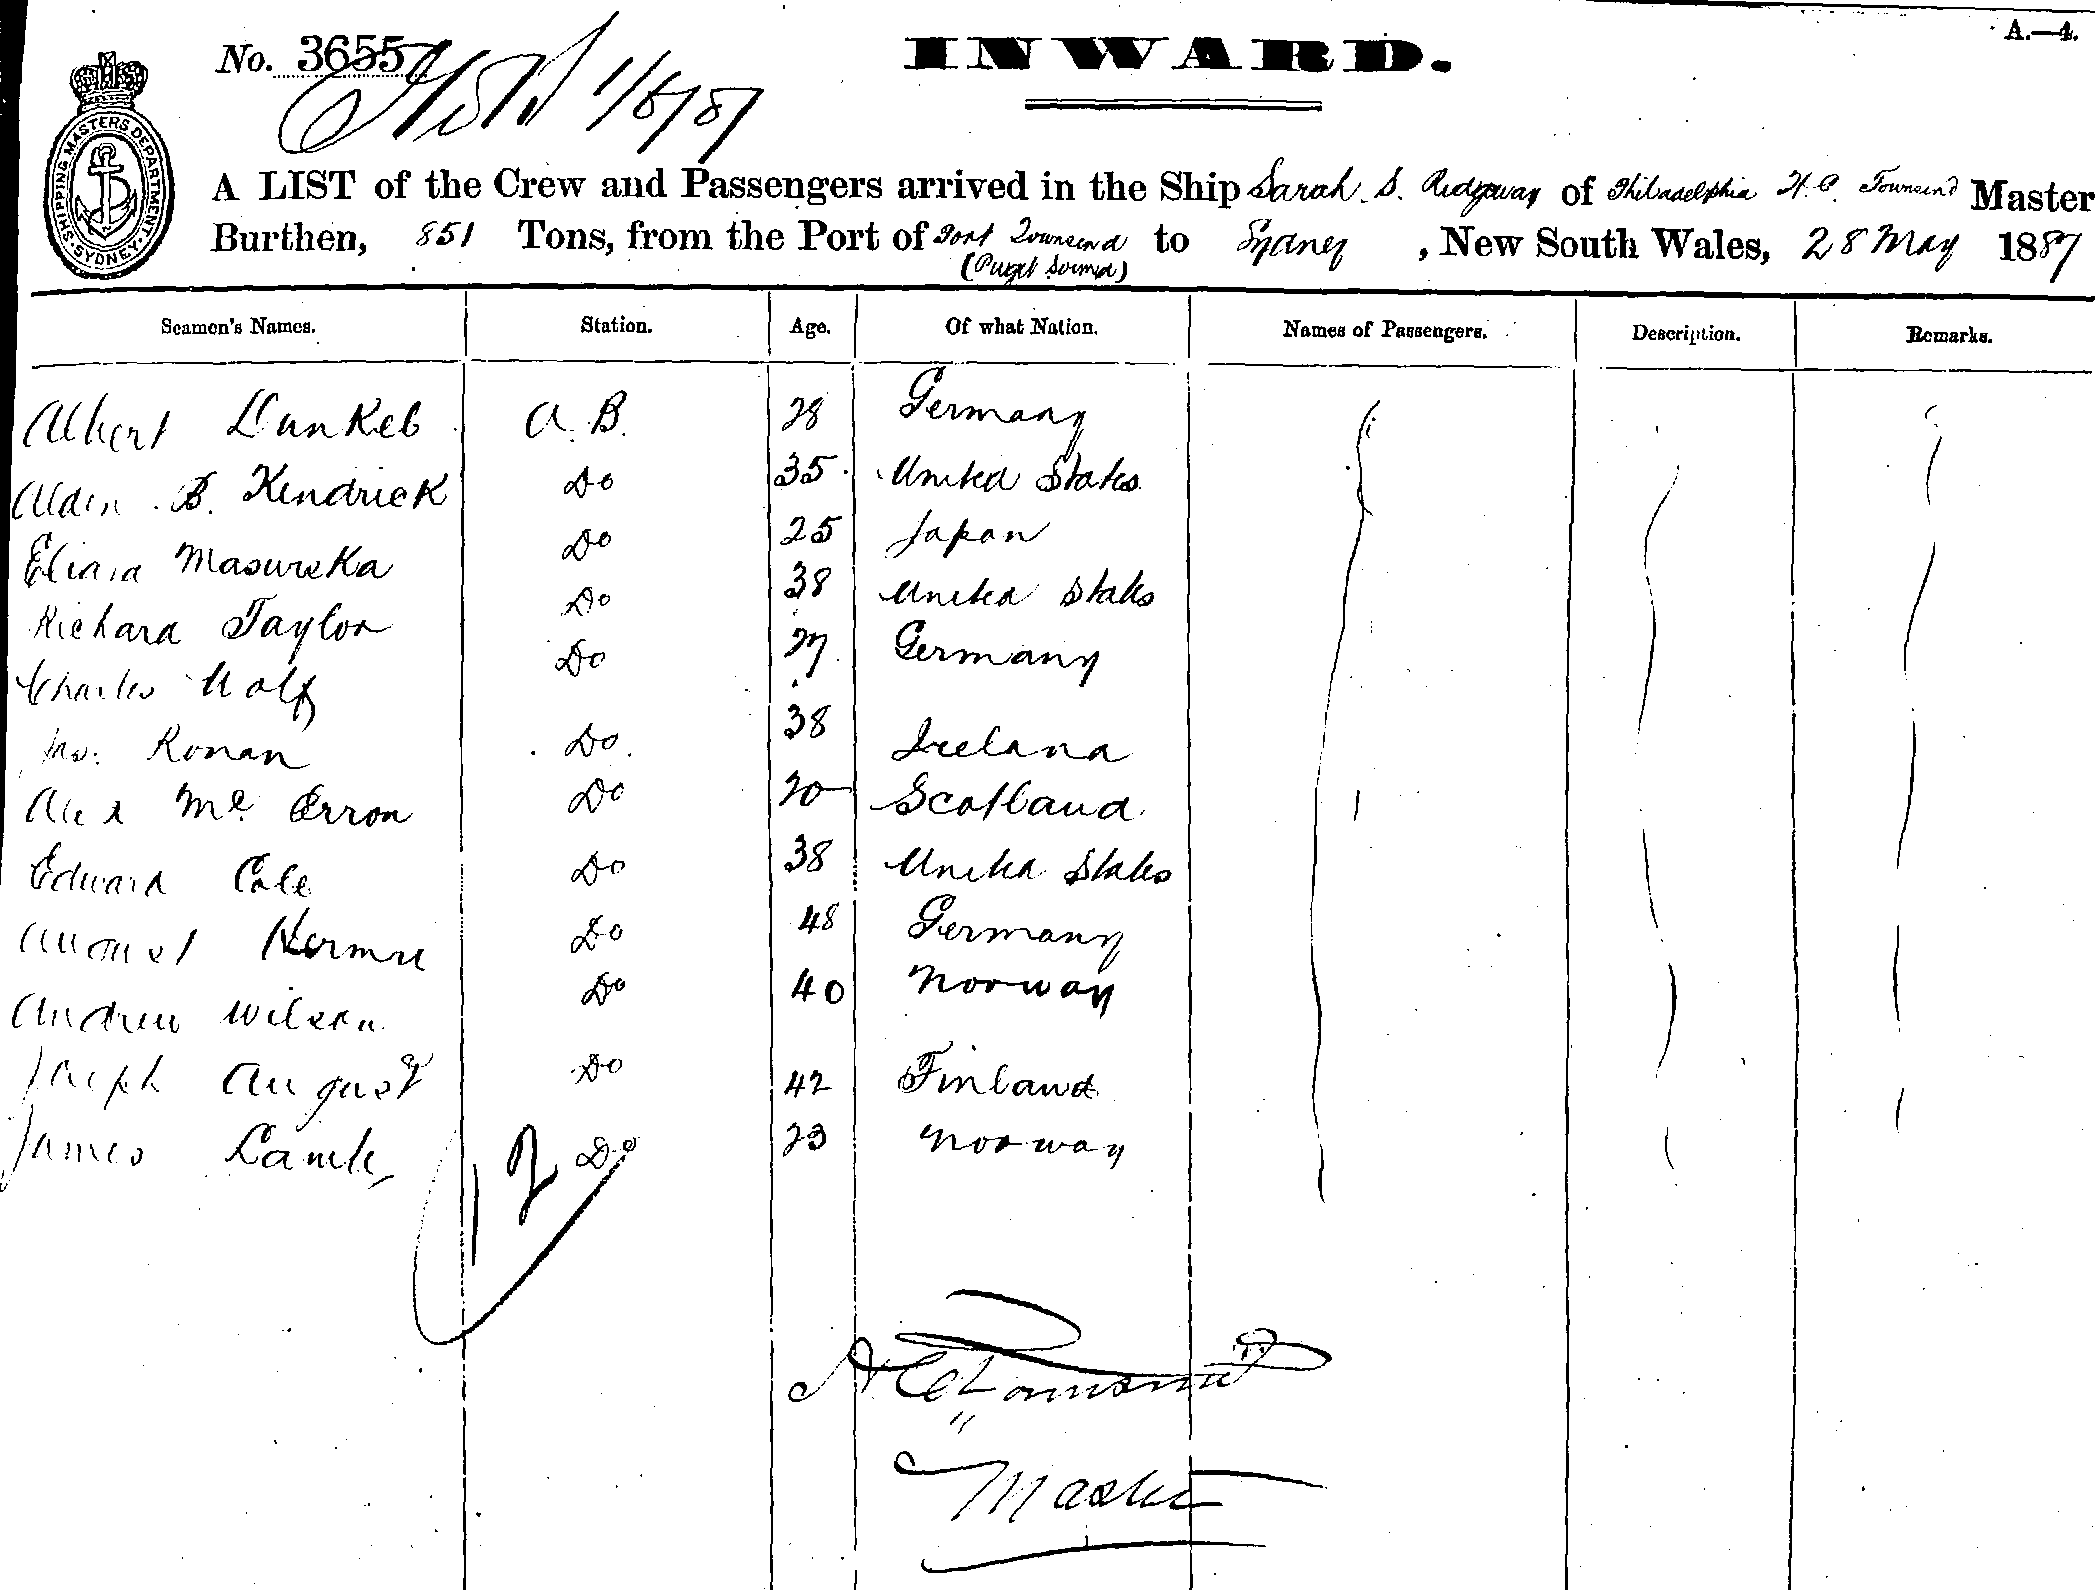 A.—4.
No. 3655
INWARD.
1/6/87
SHIPPING MASTERS DEPARTMENT. SYDNEY.
A LIST of the Crew and Passengers arrived in the Ship Sarah S. Ridgway of Philadelphia H. C. Townsend Master
Burthen, 851 Tons, from the Port of Port Townsend to Sydney , New South Wales, 28 May 1887
(Puget Sound)
Seamen's Names. Station. Age. Of what Nation. Names of Passengers. Description. Remarks.
Albert Dunkel A. B. 28 Germany
Alden B. Kendrick Do 35 United States
Masureka Do 25 Japan
Richard Taylor Do 38 United States
Charles Wolf Do 27 Germany
Jas. Ronan Do 38 Ireland
Alex Mc Erron Do 20 Scotland
Edward Cole Do 38 United States
August Do 48 Germany
Andrew Wilson Do 40 Norway
Joseph August Do 42 Finland
James Do 23 Norway
12
H C Townsend
Master